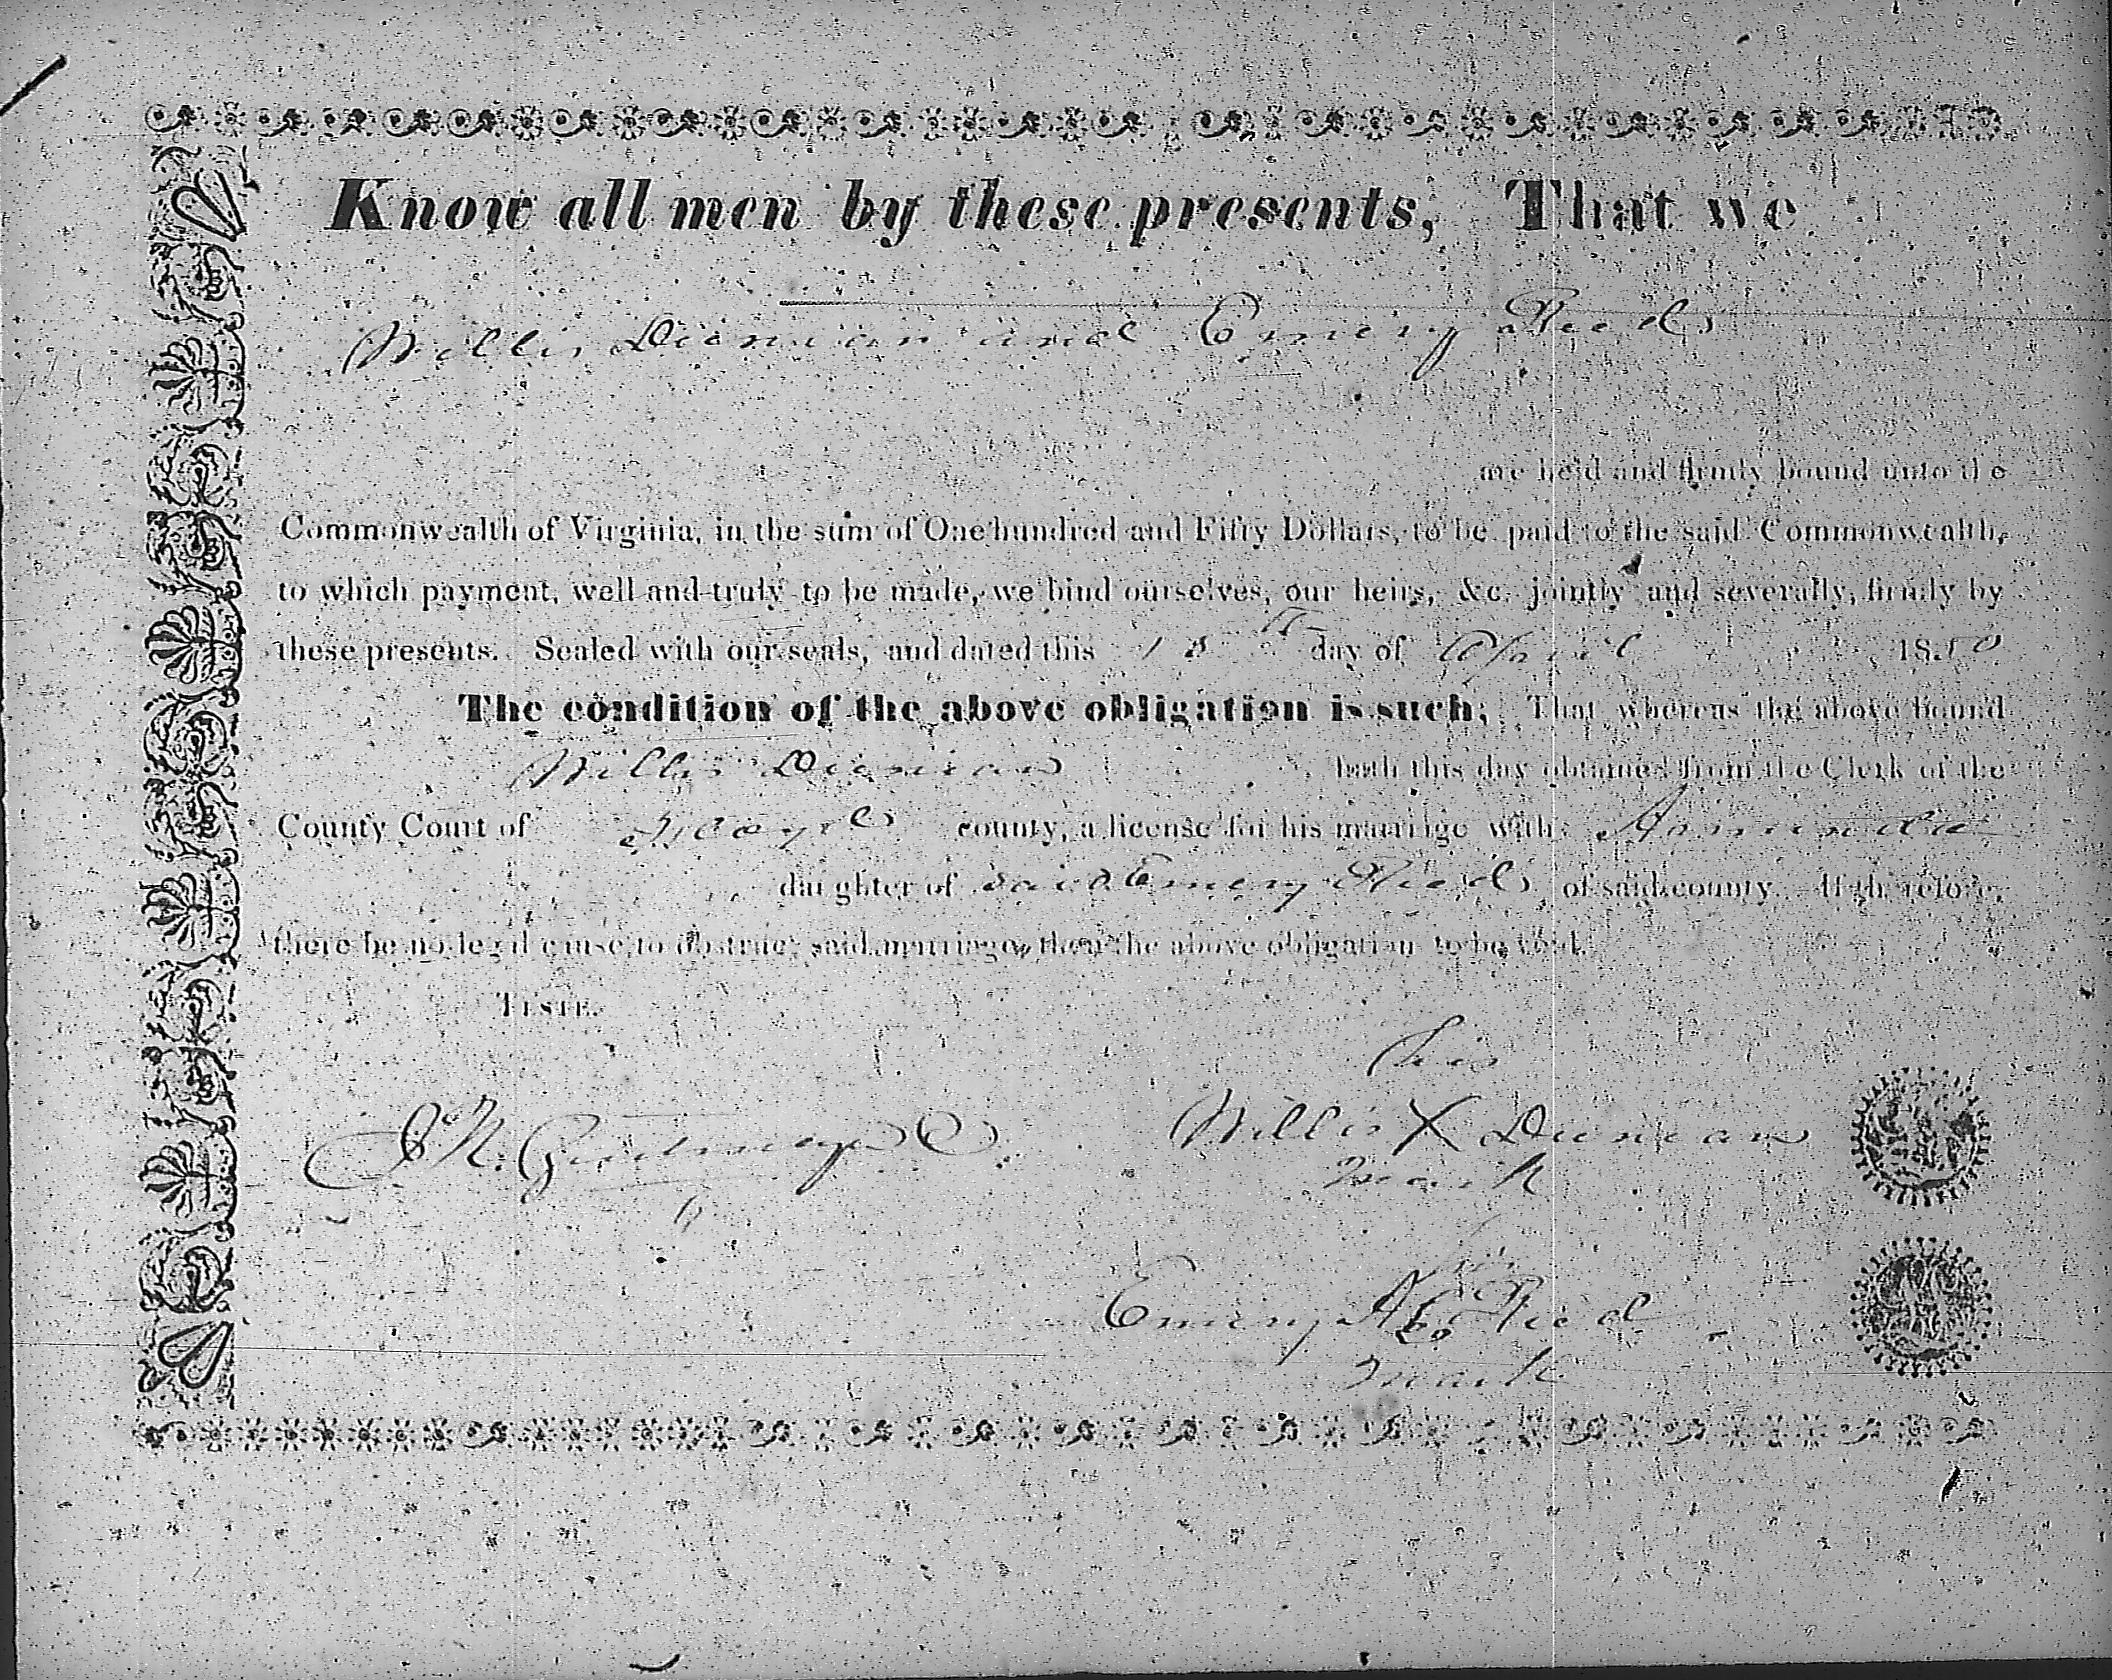 Know all men by these presents, That we
Willis Duncan and Emery Reed
are held and firmly bound unto the
Commonwealth of Virginia, in the sum of One hundred and Fifty Dollars, to be paid to the said Commonwealth,
to which payment, well and truly to be made, we bind ourselves, our heirs, &c. jointly and severally, firmly by
these presents. Sealed with our seals, and dated this 18th day of April 1850
The condition of the above obligation is such, That whereas the above bound
Willis Duncan hath this day obtained from the Clerk of the
County Court of Floyd county, a license for his marriage with
daughter of said Emery Reed of said county. If therefore,
there be no legal cause to obstruct said marriage, then the above obligation to be void.
TESTE.
his
Willis X Duncan
mark
his
Emery Reed
mark